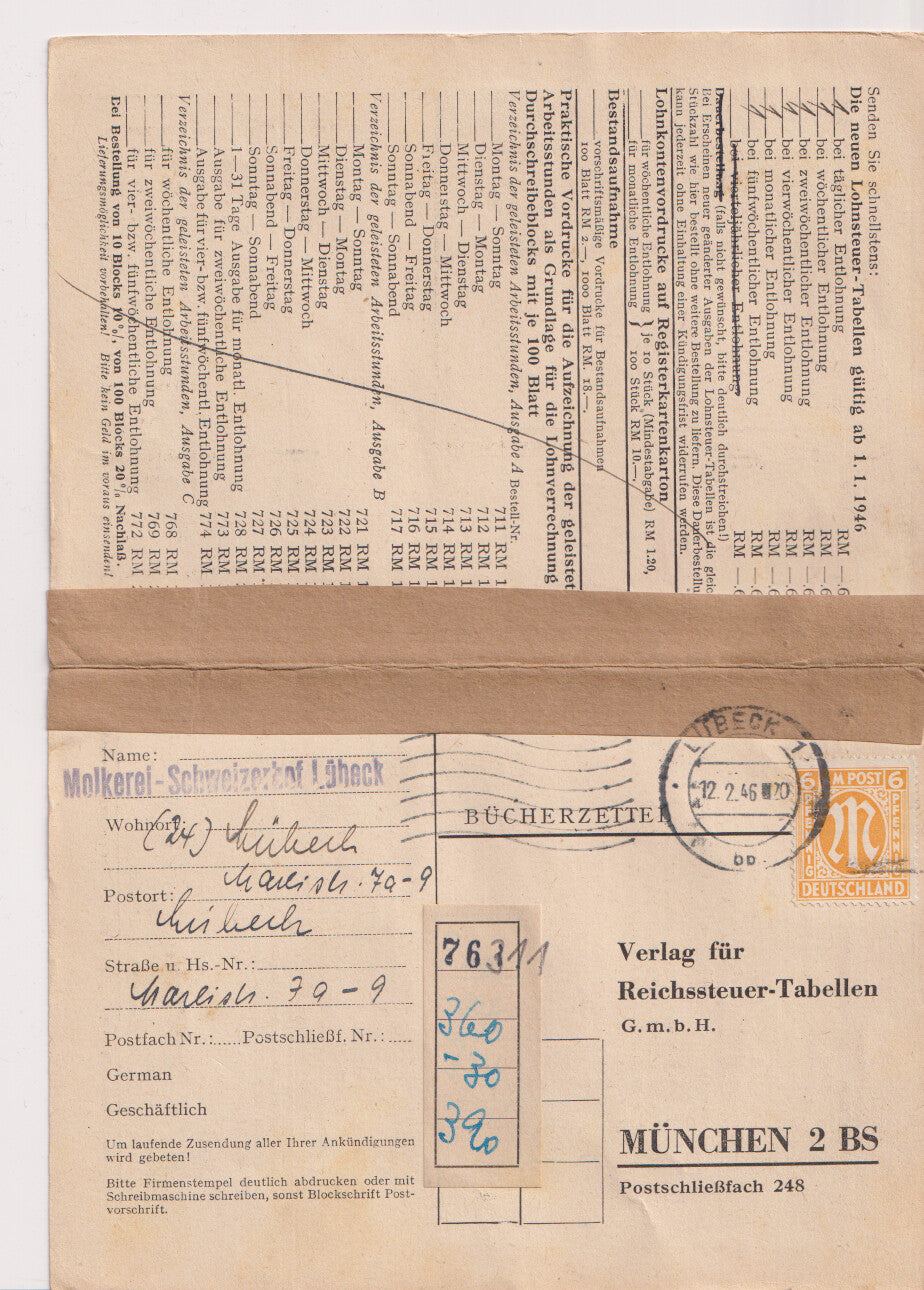 Senden Sie schnellstens:
Die neuen Lohnsteuer-Tabellen gültig ab 1. 1. 1946
1 bei täglicher Entlohnung RM —.6
1 bei wöchentlicher Entlohnung RM —.6
1 bei zweiwöchentlicher Entlohnung RM —.6
1 bei vierwöchentlicher Entlohnung RM —.6
1 bei monatlicher Entlohnung RM —.6
1 bei fünfwöchentlicher Entlohnung RM —.6
bei vierteljährlicher Entlohnung RM —.6
Dauerbestellung (falls nicht gewünscht, bitte deutlich durchstreichen!)
Bei Erscheinen neuer geänderter Ausgaben der Lohnsteuer-Tabellen ist die gleic
Stückzahl wie hier bestellt ohne weitere Bestellung zu liefern. Diese Dauerbestellu
kann jederzeit ohne Einhaltung einer Kündigungsfrist widerrufen werden.
Lohnkontenvordrucke auf Registerkartenkarton
für wöchentliche Entlohnung } je 10 Stück (Mindestabgabe) RM 1.20,
für monatliche Entlohnung } 100 Stück RM 10.—,
Bestandsaufnahme
vorschriftsmäßige Vordrucke für Bestandsaufnahmen
100 Blatt RM 2.—, 1000 Blatt RM. 18.—,
Praktische Vordrucke für die Aufzeichnung der geleistet
Arbeitsstunden als Grundlage für die Lohnverrechnung
Durchschreibeblocks mit je 100 Blatt
Verzeichnis der geleisteten Arbeitsstunden, Ausgabe A Bestell-Nr.
Montag — Sonntag 711 RM 1
Dienstag — Montag 712 RM 1
Mittwoch — Dienstag 713 RM 1
Donnerstag — Mittwoch 714 RM 1
Freitag — Donnerstag 715 RM 1
Sonnabend — Freitag 716 RM 1
Sonntag — Sonnabend 717 RM 1
Verzeichnis der geleisteten Arbeitsstunden, Ausgabe B
Montag — Sonntag 721 RM 1
Dienstag — Montag 722 RM 1
Mittwoch — Dienstag 723 RM 1
Donnerstag — Mittwoch 724 RM 1
Freitag — Donnerstag 725 RM 1
Sonnabend — Freitag 726 RM 1
Sonntag — Sonnabend 727 RM 1
1—31 Tage Ausgabe für monatl. Entlohnung 728 RM 1
Ausgabe für zweiwöchentliche Entlohnung 773 RM 1
Ausgabe für vier- bzw. fünfwöchentl. Entlohnung 774 RM 1
Verzeichnis der geleisteten Arbeitsstunden, Ausgabe C
für wöchentliche Entlohnung 768 RM 1
für zweiwöchentliche Entlohnung 769 RM 1
für vier- bzw. fünfwöchentliche Entlohnung 772 RM 1
Bei Bestellung von 10 Blocks 10%, von 100 Blocks 20% Nachlaß.
Lieferungsmöglichkeit vorbehalten! Bitte kein Geld im voraus einsenden!
Name:
Molkerei-Schweizerhof Lübeck
Wohnort: (24) Lübeck
Marlistr. 7a-9
Postort:
Lübeck
Straße u. Hs.-Nr.:
Marlistr. 7a-9
Postfach Nr.: Postschließf. Nr.:
German
Geschäftlich
Um laufende Zusendung aller Ihrer Ankündigungen
wird gebeten!
Bitte Firmenstempel deutlich abdrucken oder mit
Schreibmaschine schreiben, sonst Blockschrift Post-
vorschrift.
76311
360
-30
390
BÜCHERZETTEL
LÜBECK 1
12.2.46 20
bb
6 AM POST 6
PFENNIG
PFENNIG
M
DEUTSCHLAND
Verlag für
Reichssteuer-Tabellen
G.m.b.H.
MÜNCHEN 2 BS
Postschließfach 248